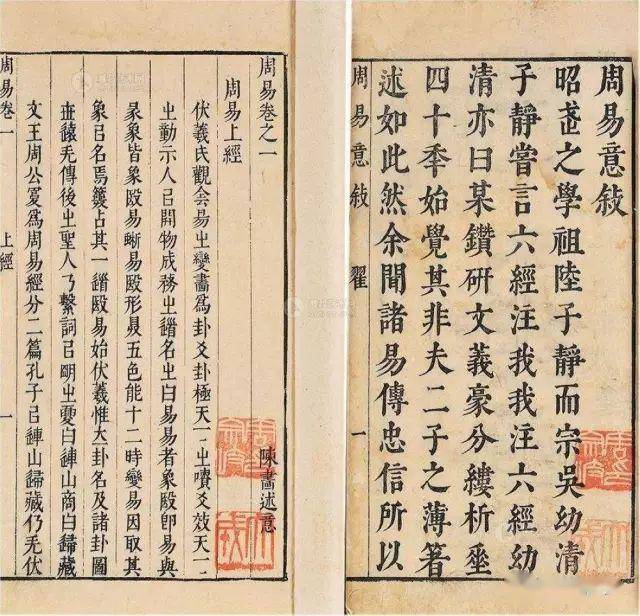 周易意敍
昭之學祖陸子靜而宗吳幼清
子靜嘗言六經注我我注六經幼
清亦曰某鑽研文義豪分縷析坐
四十季始覺其非夫二子之薄著
述如此然余聞諸易傳忠信所以
周易意敍 翟 一
周易卷之一
陳畫述意
周易上經
伏羲氏觀会易㞢變畫爲卦爻卦極天㞢嘖爻效天
㞢動示人㠯開物成務㞢名㞢曰易易者象毆即易與
彖象皆象毆易蜥易毆形五色能十二時變易因取其
象㠯名焉占其一毆易始伏羲惟大卦名及諸卦圖
无傳後㞢聖人乃繫詞㠯朙㞢夏曰連山商曰歸藏
文王周公爲周易經分二篇孔子㠯連山歸藏仍无伏
周易卷一 上經 一